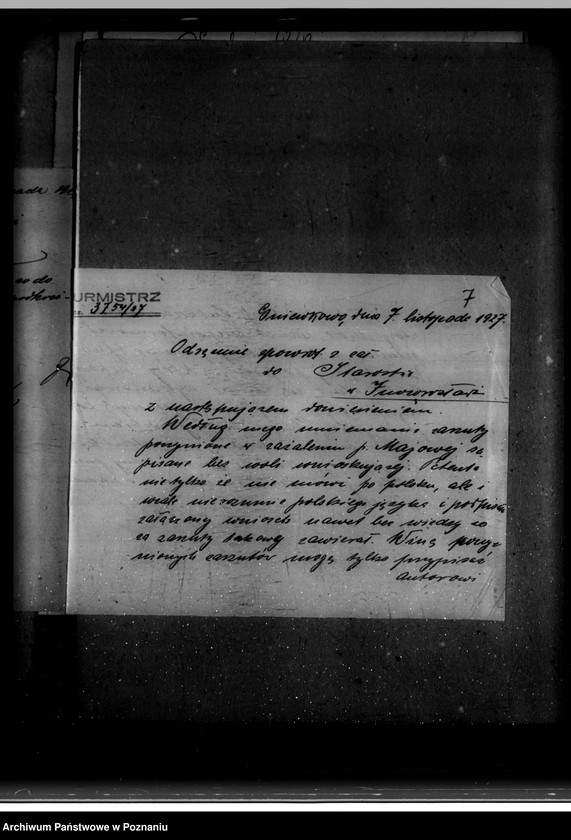 7
URMISTRZ
3754/27
Gniewkowo, dnia 7 listopada 1927.
Odręcznie zpowrot z zał.
do Starostw
w Inowrocławiu
z następującem doniesieniem.
Według mego mniemania zarzuty
poczynione w zażaleniu p. Majowej są
pisane bez woli wnioskującej.
nietylko że nie mówi po polsku, ale i
wcale nierozumie polskiego języka i podpisała
załączony wniosek nawet bez wiedzy co
za zarzuty takowy zawierał. Winę poczy-
nionych zarzutów mogę tylko przypisać
autorowi
Archiwum Państwowe w Poznaniu